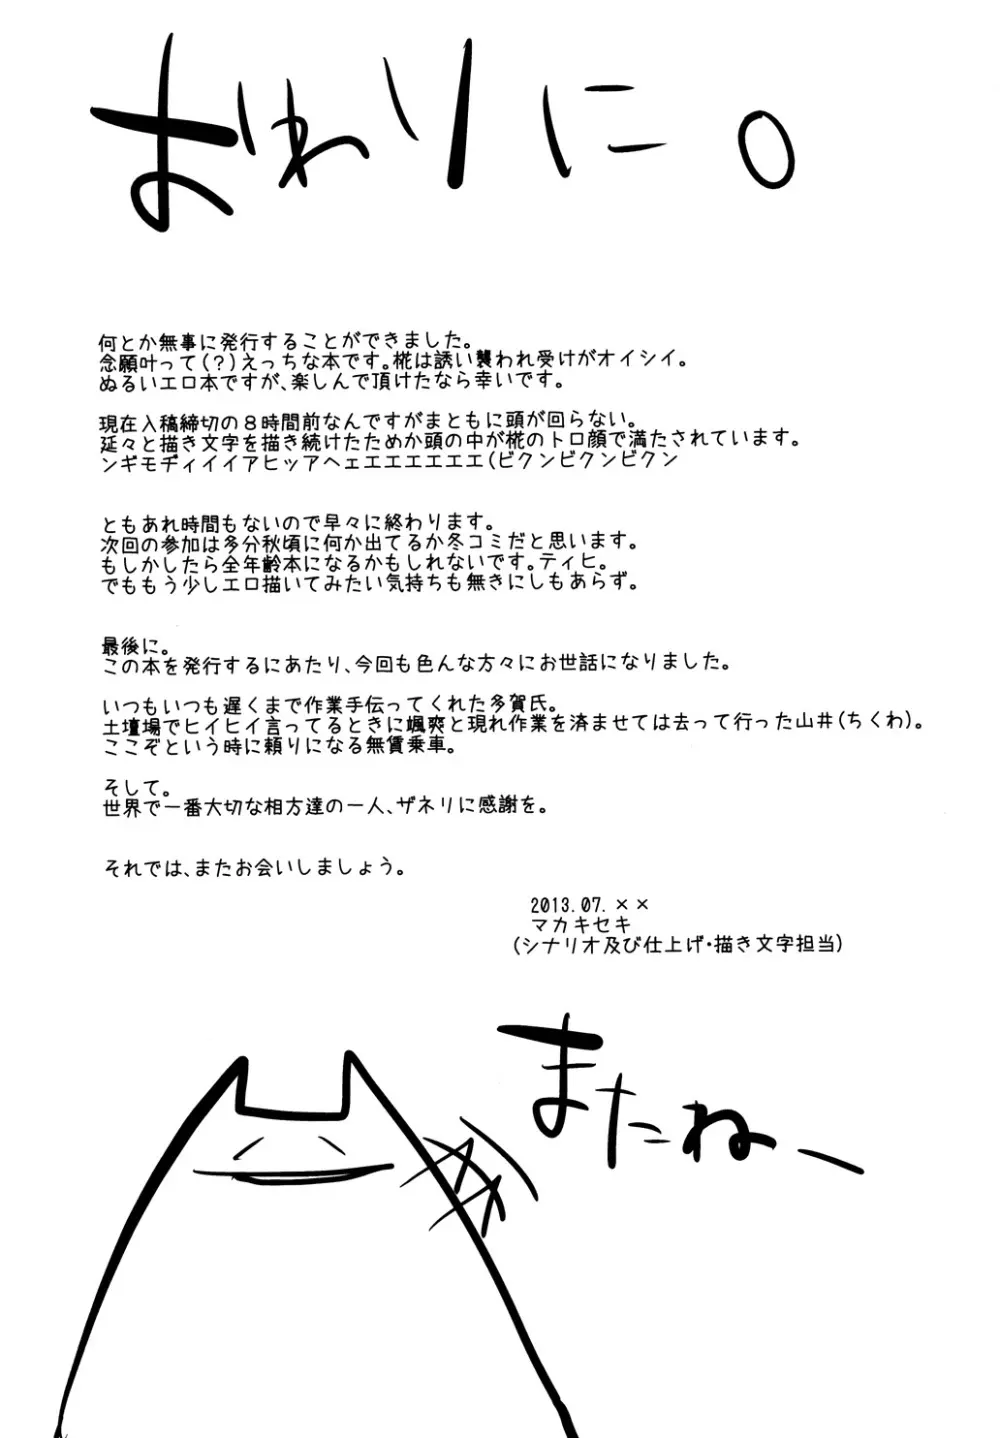 おわりに。
何とか無事に発行することができました。
念願叶って(?)えっちな本です。椛は誘い襲われ受けがオイシイ。
ぬるいエロ本ですが、楽しんで頂けたなら幸いです。
現在入稿締切の8時間前なんですがまともに頭が回らない。
延々と描き文字を描き続けたためか頭の中が椛のトロ顔で満たされています。
ンギモヂィイイアヒッアヘェエエエエエエ(ビクンビクンビクン
ともあれ時間もないので早々に終わります。
次回の参加は多分秋頃に何か出てるか冬コミだと思います。
もしかしたら全年齢本になるかもしれないです。ティヒ。
でももう少しエロ描いてみたい気持ちも無きにしもあらず。
最後に。
この本を発行するにあたり、今回も色んな方々にお世話になりました。
いつもいつも遅くまで作業手伝ってくれた多賀氏。
土壇場でヒイヒイ言ってるときに颯爽と現れ作業を済ませては去って行った山井(ちくわ)。
ここぞという時に頼りになる無賃乗車。
そして。
世界で一番大切な相方達の一人、ザネリに感謝を。
それでは、またお会いしましょう。
2013.07.××
マカキセキ
(シナリオ及び仕上げ・描き文字担当)
またねー